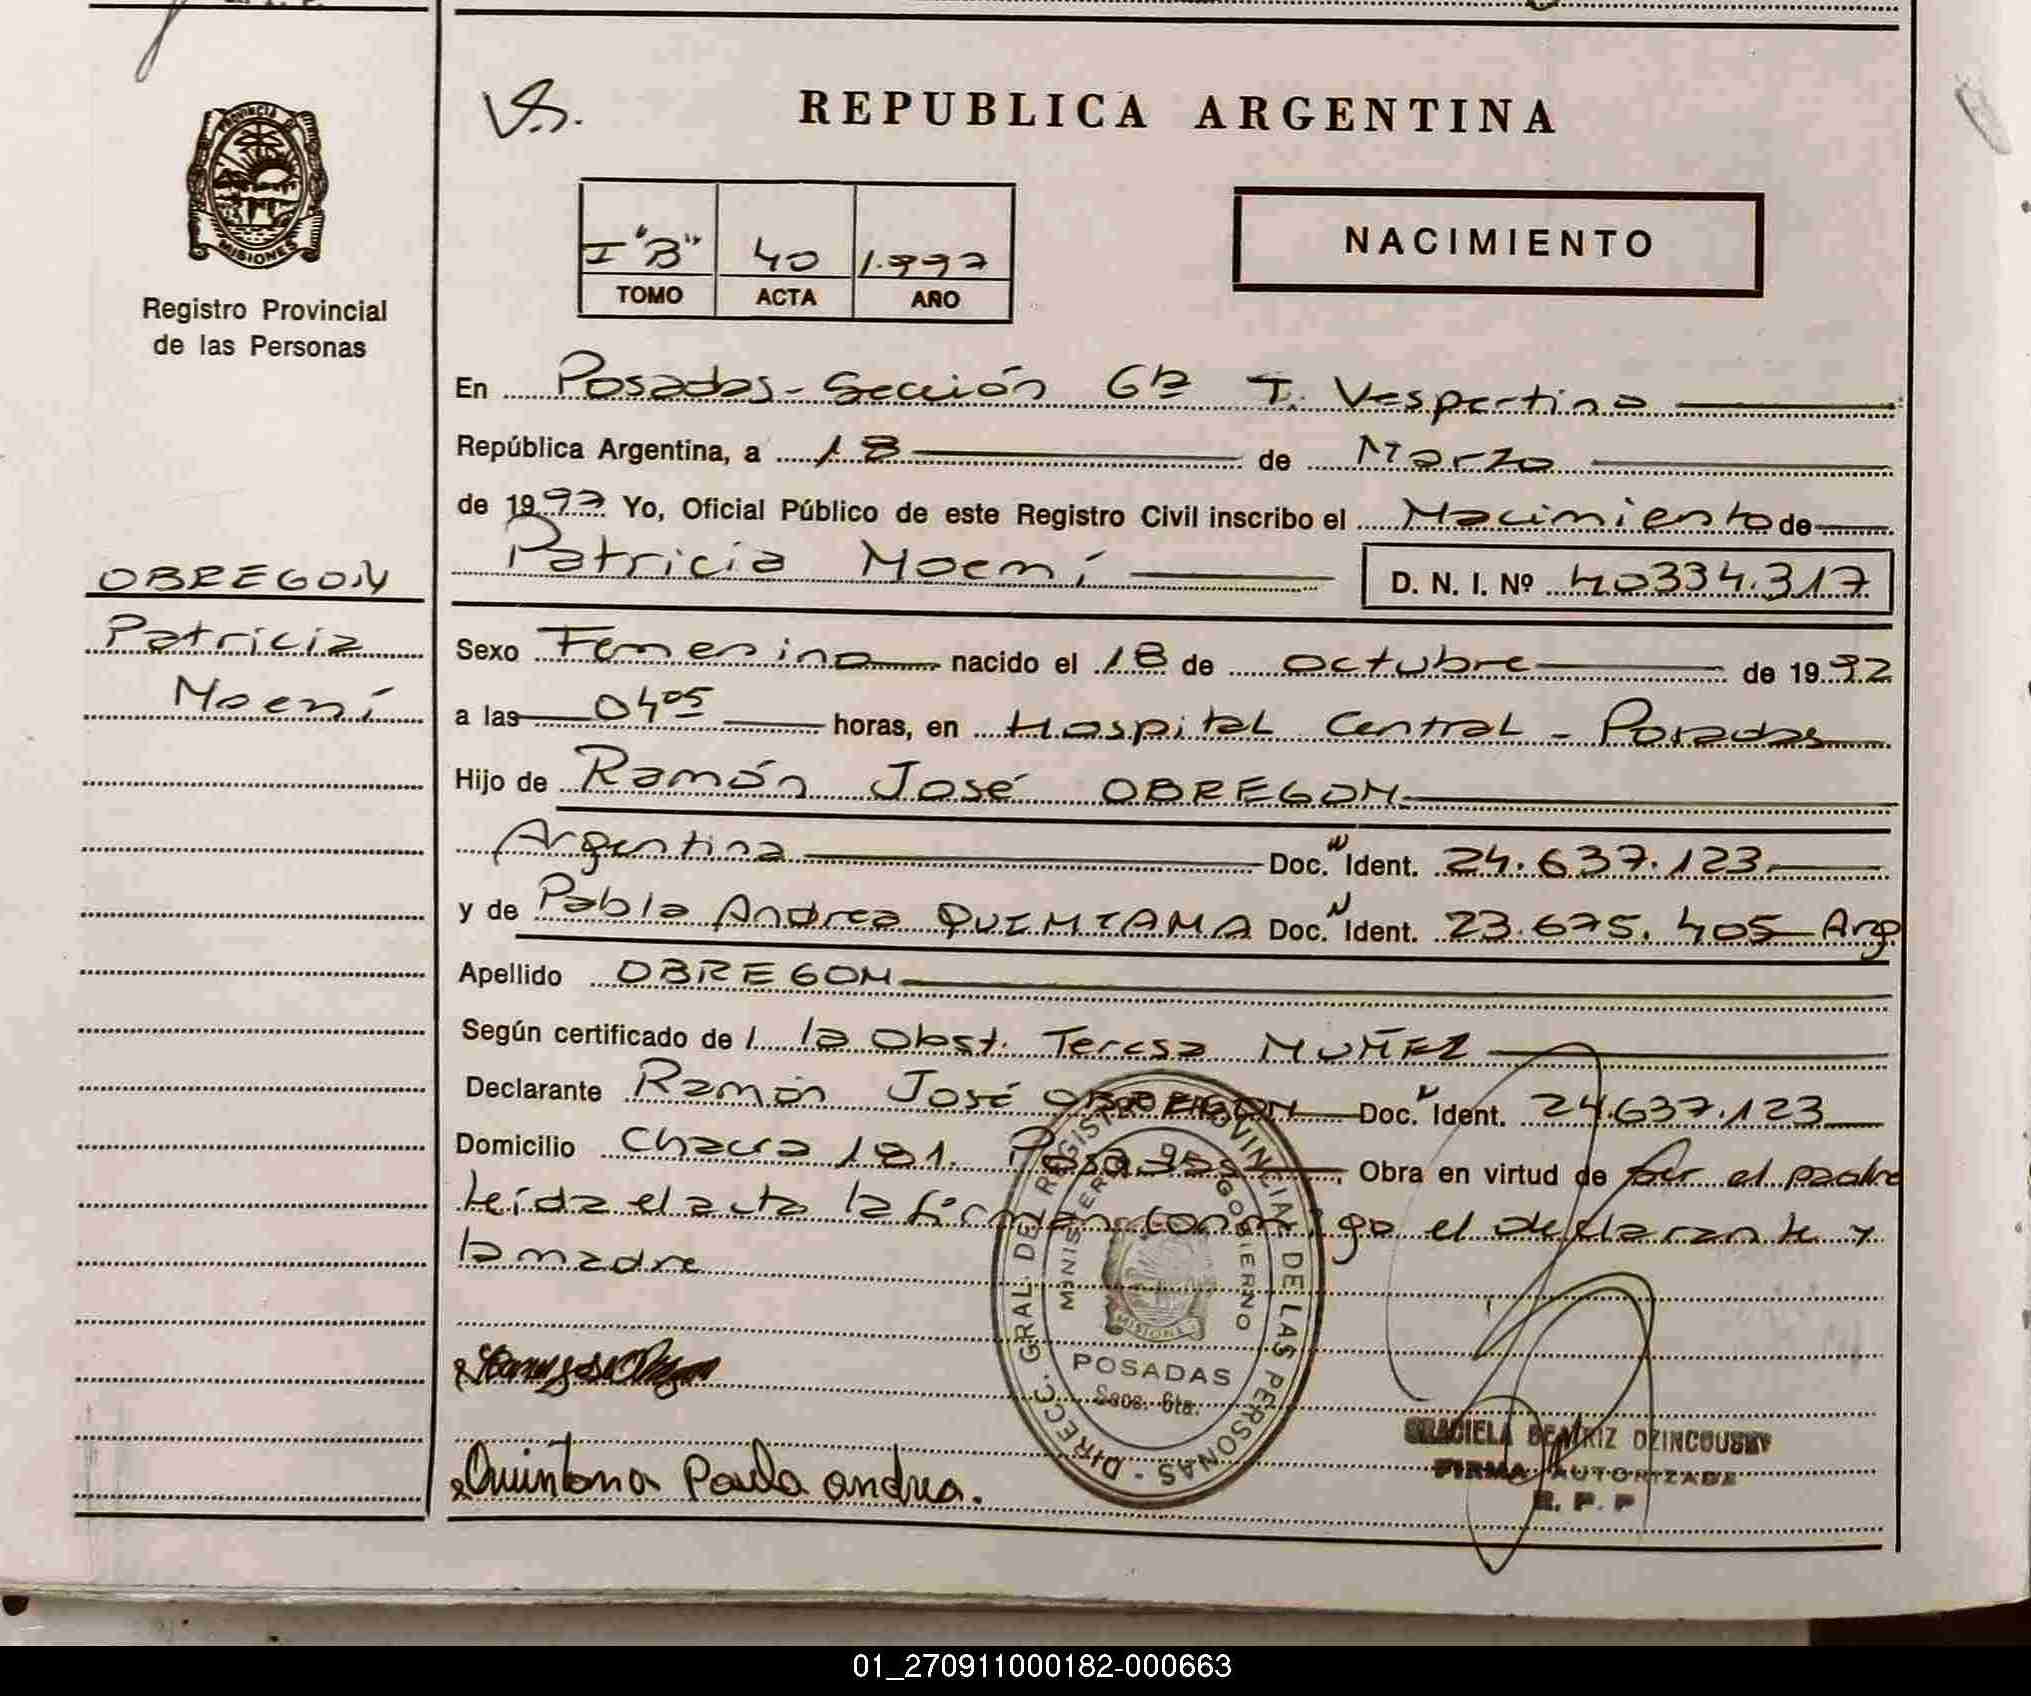 V.S.
REPUBLICA ARGENTINA
PROVINCIA DE
MISIONES
I "B" 40 1.997
TOMO ACTA AÑO
NACIMIENTO
Registro Provincial
de las Personas
En Posadas - Sección 6ta T. Vespertino
República Argentina, a 18 de Marzo
de 1997 Yo, Oficial Público de este Registro Civil inscribo el Nacimiento de
Patricia Noemí D. N. I. Nº 40334.317
OBREGON
Patricia
Noemí
Sexo Femenino nacido el 18 de octubre de 1992
a las 04 05 horas, en Hospital Central - Posadas
Hijo de Ramón José OBREGON
Argentina Doc. N Ident. 24.637.123
y de Pabla Andrea QUINTANA Doc. N Ident. 23.675.405 Arg
Apellido OBREGON
Según certificado de l la Obst. Teresa MUÑEZ
Declarante Ramón José OBREGON Doc. N Ident. 24.637.123
Domicilio Chacra 181. Posadas, Obra en virtud de ser el padre
Leída el acta la firman conmigo el declarante y
la madre
DIRECC. GRAL. DEL REGISTRO PROVINCIAL DE LAS PERSONAS
MINISTERIO DE GOBIERNO
MISIONES
POSADAS
Secc. 6ta.
GRACIELA BEATRIZ DZINCOUSKY
FIRMA AUTORIZADA
R. P. P
Quintana Pabla andrea.
01_270911000182-000663